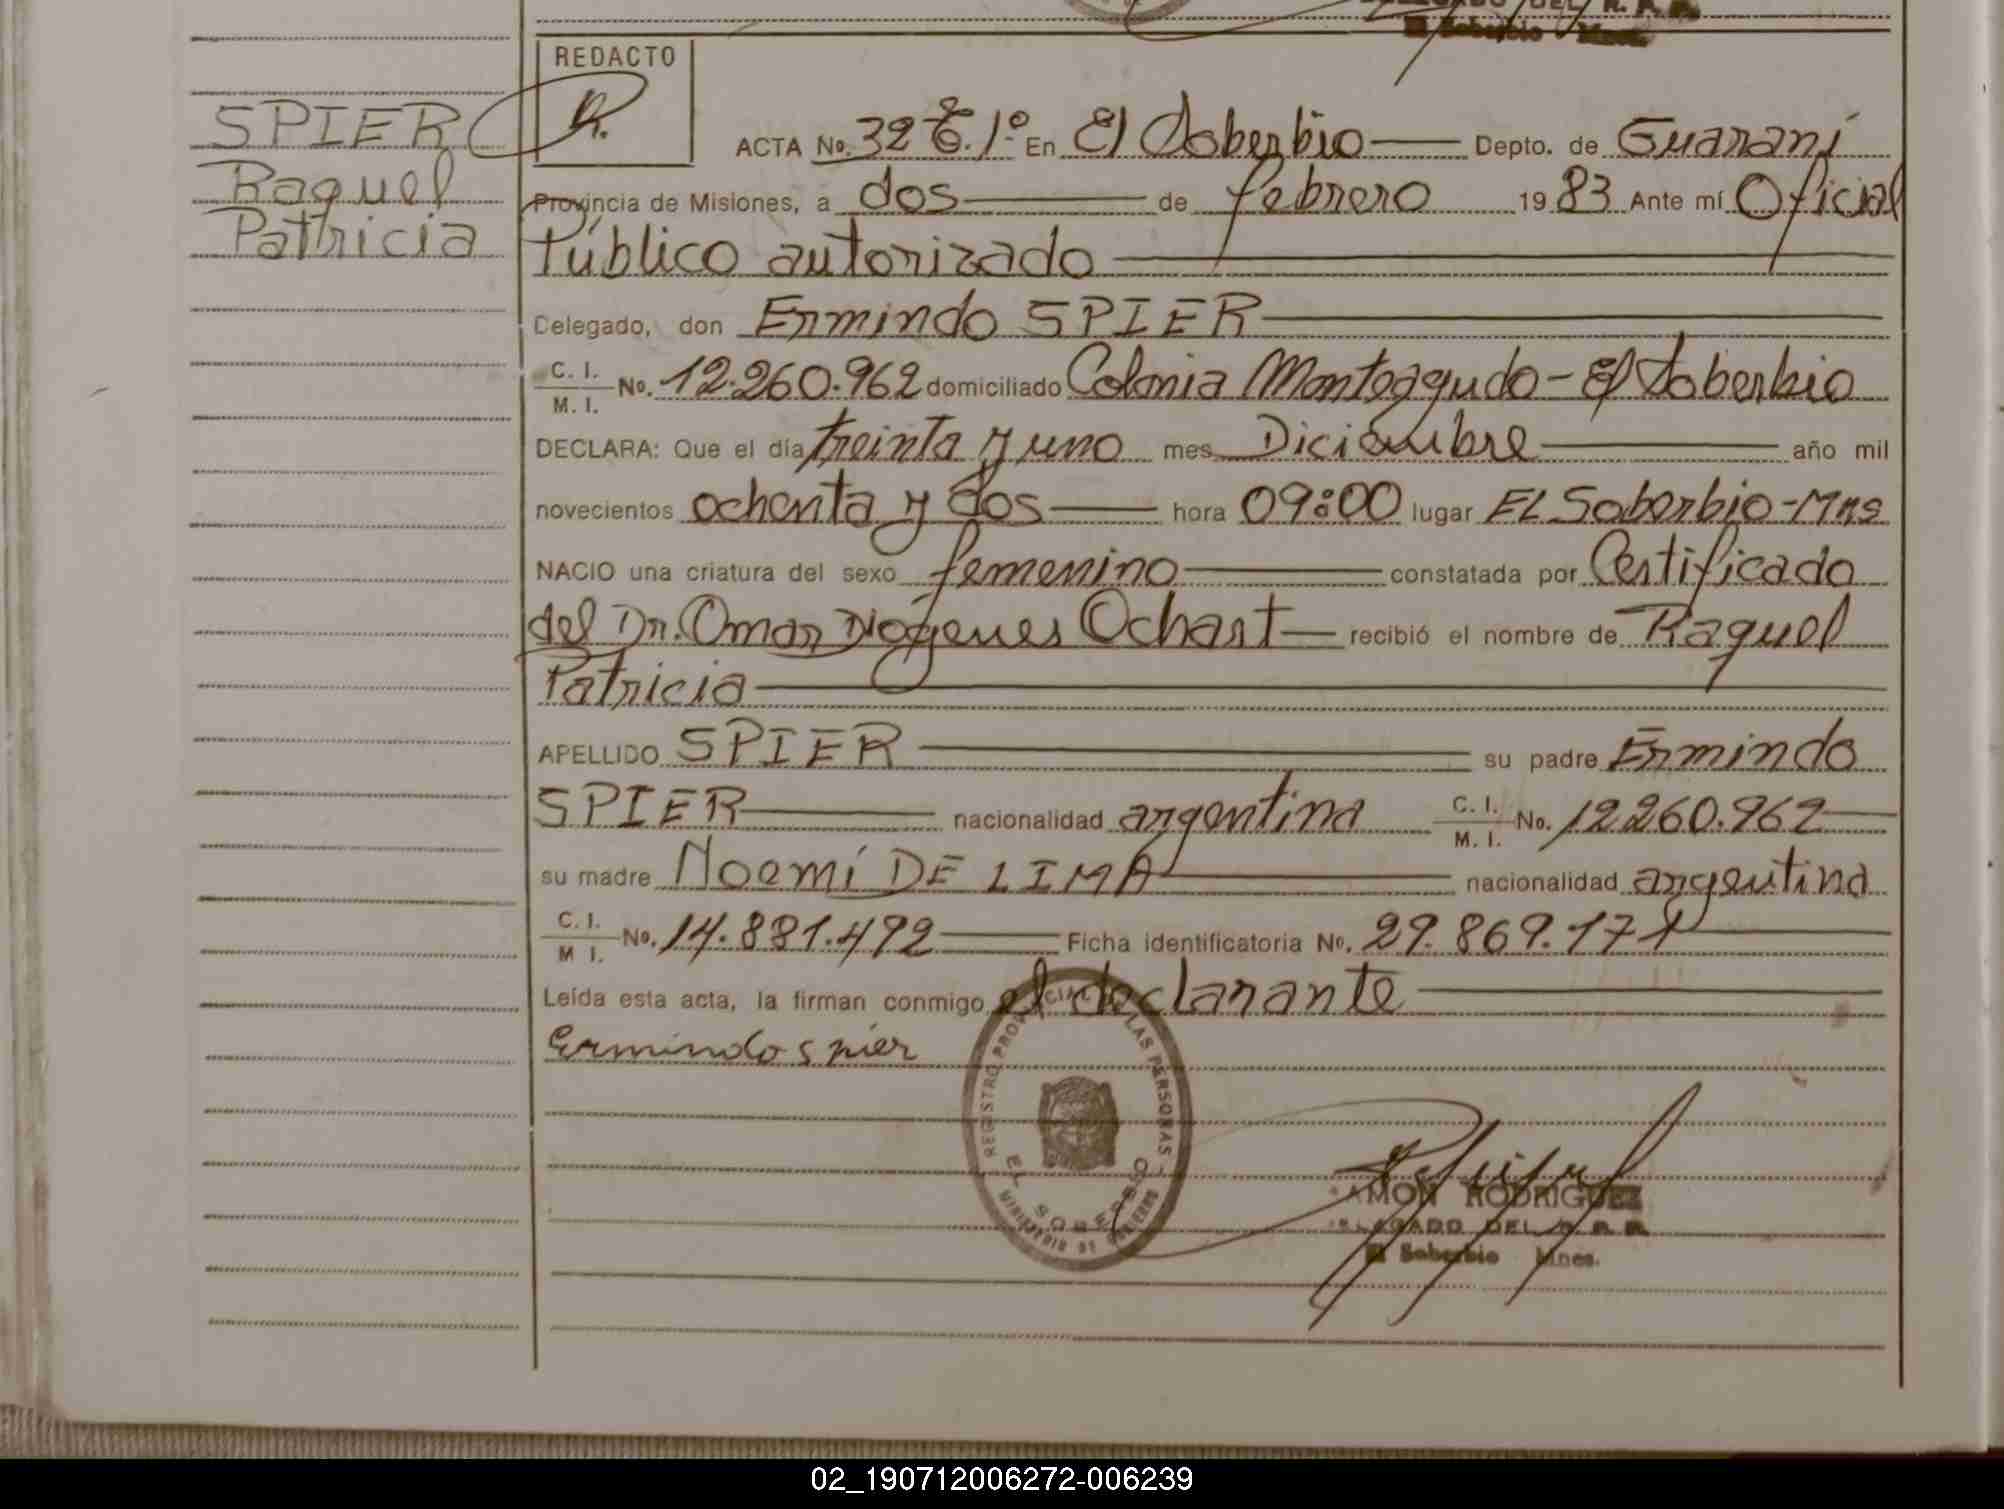 DEL R. P. P.
El Soberbio - Mnes.
REDACTO
R.
SPIER
Raquel
Patricia
ACTA No. 32 Tº. 1º En El Soberbio Depto. de Guaraní
Provincia de Misiones, a dos de febrero 1983 Ante mí Oficial
Público autorizado
Delegado, don Ermindo SPIER
C. I. / M. I. No. 12.260.962 domiciliado Colonia Monteagudo - El Soberbio
DECLARA: Que el día treinta y uno mes Diciembre año mil
novecientos ochenta y dos hora 09:00 lugar EL Soberbio-Mns
NACIO una criatura del sexo femenino constatada por Certificado
del Dr. Omar Diógenes Ochart recibió el nombre de Raquel
Patricia
APELLIDO SPIER su padre Ermindo
SPIER nacionalidad argentina C. I. / M. I. No. 12.260.962
su madre Noemí DE LIMA nacionalidad argentina
C. I. / M I. No. 14.881.492 Ficha identificatoria No. 29.869.171
Leída esta acta, la firman conmigo el declarante
Ermindo Spier
REGISTRO PROVINCIAL DE LAS PERSONAS
EL SOBERBIO
MINISTERIO DE GOBIERNO
RAMON RODRIGUEZ
DELEGADO DEL R. P. P.
El Soberbio Mnes.
02_190712006272-006239